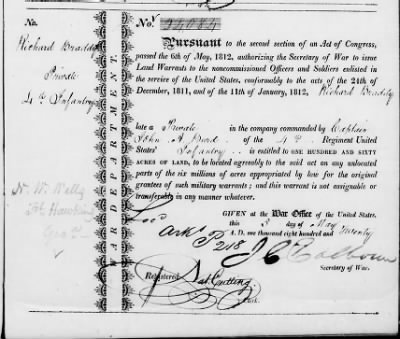 No. 24084
Richard Braddly
Private
4th Infantry
Pursuant to the second section of an Act of Congress,
passed the 6th of May, 1812, authorizing the Secretary of War to issue
Land Warrants to the noncommissioned Officers and Soldiers enlisted in
the service of the United States, conformably to the acts of the 24th of
December, 1811, and of the 11th of January, 1812, Richard Braddly
late a Private in the company commanded by Captain
John A. of the 4th Regiment United
States' Infantry is entitled to ONE HUNDRED AND SIXTY
ACRES OF LAND, to be located agreeably to the said act on any unlocated
part of the six millions of acres appropriated by law for the original
grantees of such military warrants; and this warrant is not assignable or
transferable in any manner whatever.
WAR DEPARTMENT.
W. Wells
Ft. Hawkins
Geo.
GIVEN at the War Office of the United States,
this 3 day of May
A. D. one thousand eight hundred and twenty
Loc
Ark. P 218
J C Calhoun
Secretary of War.
Registered, Nat. Cutting,
Clerk.